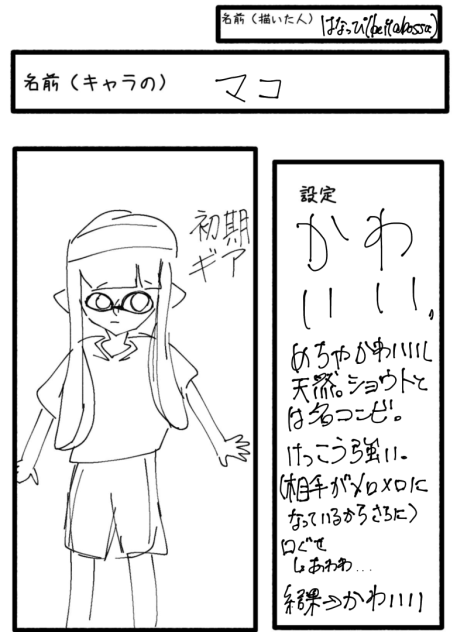 名前(描いた人) はなっぴ
名前(キャラの) マコ
初期
ギア
設定
かわ
いい。
めちゃかわいいし
天然。ショウトと
は名コンビ。
けっこう強い。
(相手がメロメロに
なっているからさらに)
口ぐせ
しょあわわ...
結果→かわいいい